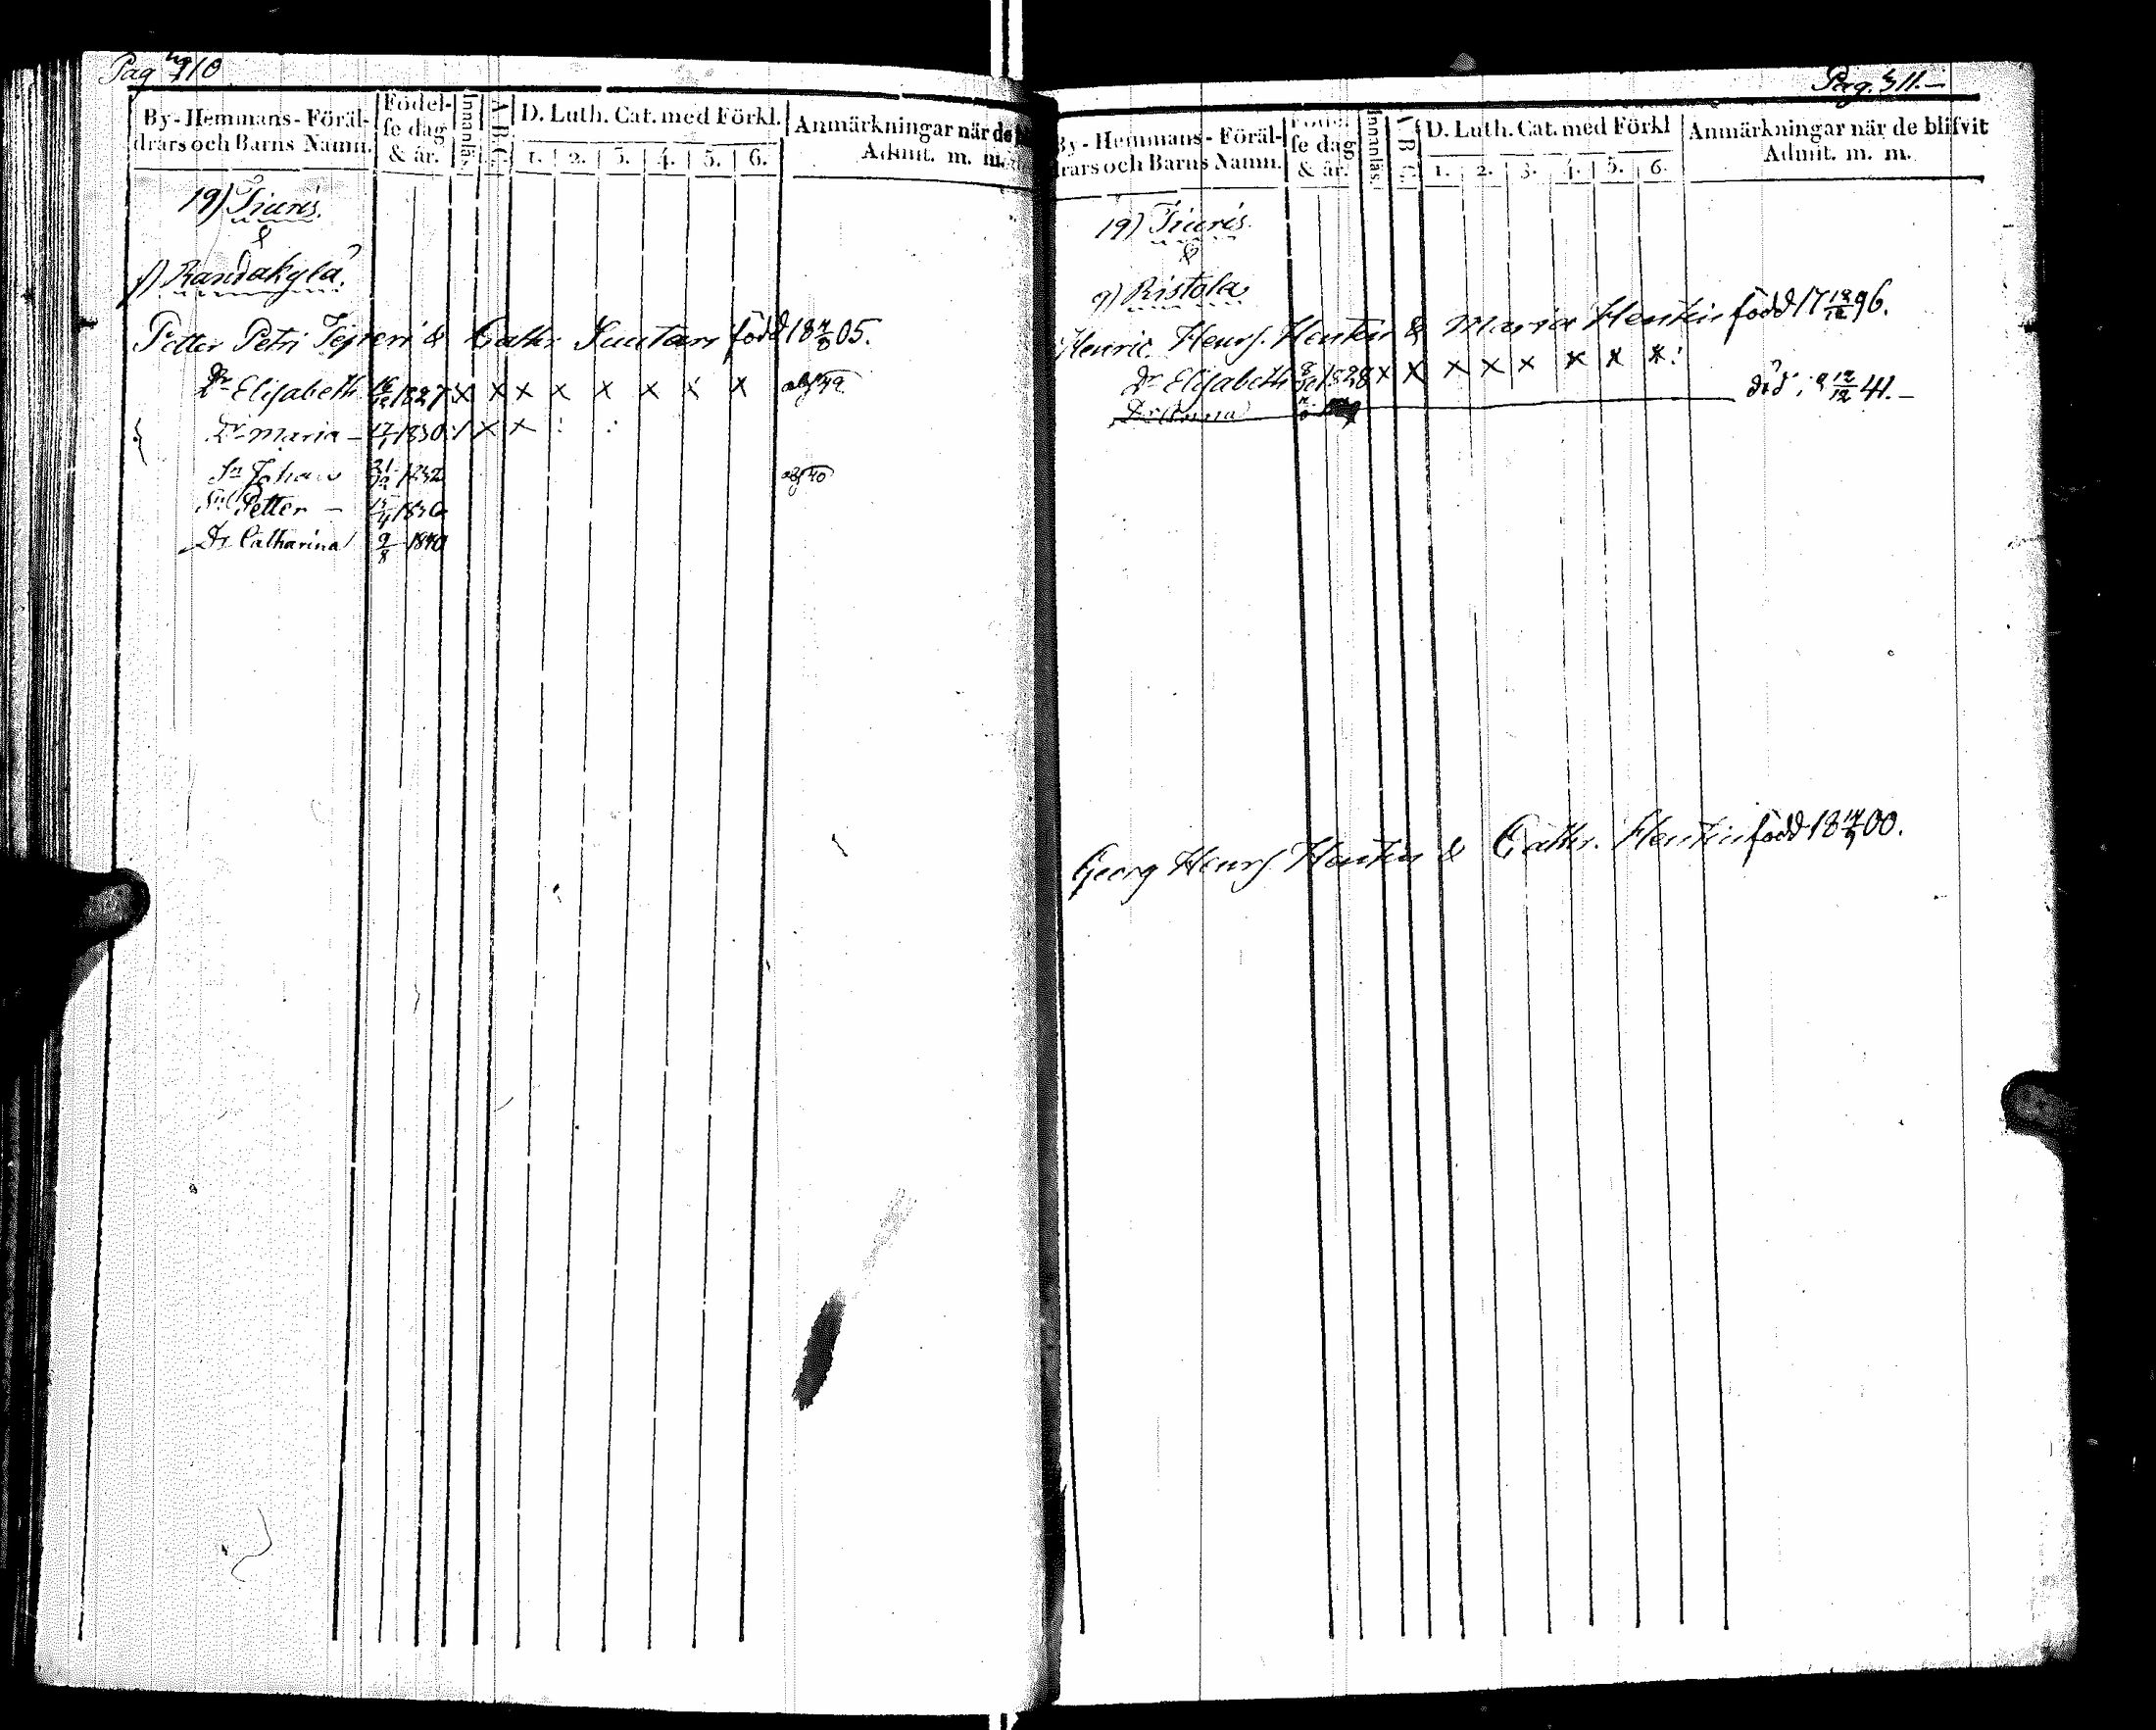 Pag 410
By-Hemmans-Föräl-
drars och Barns Namn.
Födel-
se dag
& år.
Innanläs.
A.B.C.
D. Luth. Cat. med Förkl.
1. 2. 3. 4. 5. 6.
Anmärkningar när de
Admit. m. m.
19) Tiuris.
f) Randakylä.
Petter Petri Tejreri & Cathr. Suutari född 18 05.
Dr Elisabeth 1827 x x x x x x x x
Dr Maria – 17/1 1830 x x
Sn Johan
Sn Petter –
Dr Catharina 9/8 1840
Pag. 411.–
By-Hemmans-Föräl-
drars och Barns Namn.
Födel-
se dag
& år.
Innanläs.
A.B.C.
D. Luth. Cat. med Förkl
1. 2. 3. 4. 5. 6.
Anmärkningar när de blifvit
Admit. m. m.
19) Tiuris.
g) Ristola
Henric Henrs. Henkin & Maria Henkin född 17 96.
Dr Elisabeth 1828 x x x x x x x x
Dr Anna död 12/12 41.–
Georg Henrs Henkin & Cathr. Henkin född 18 00.